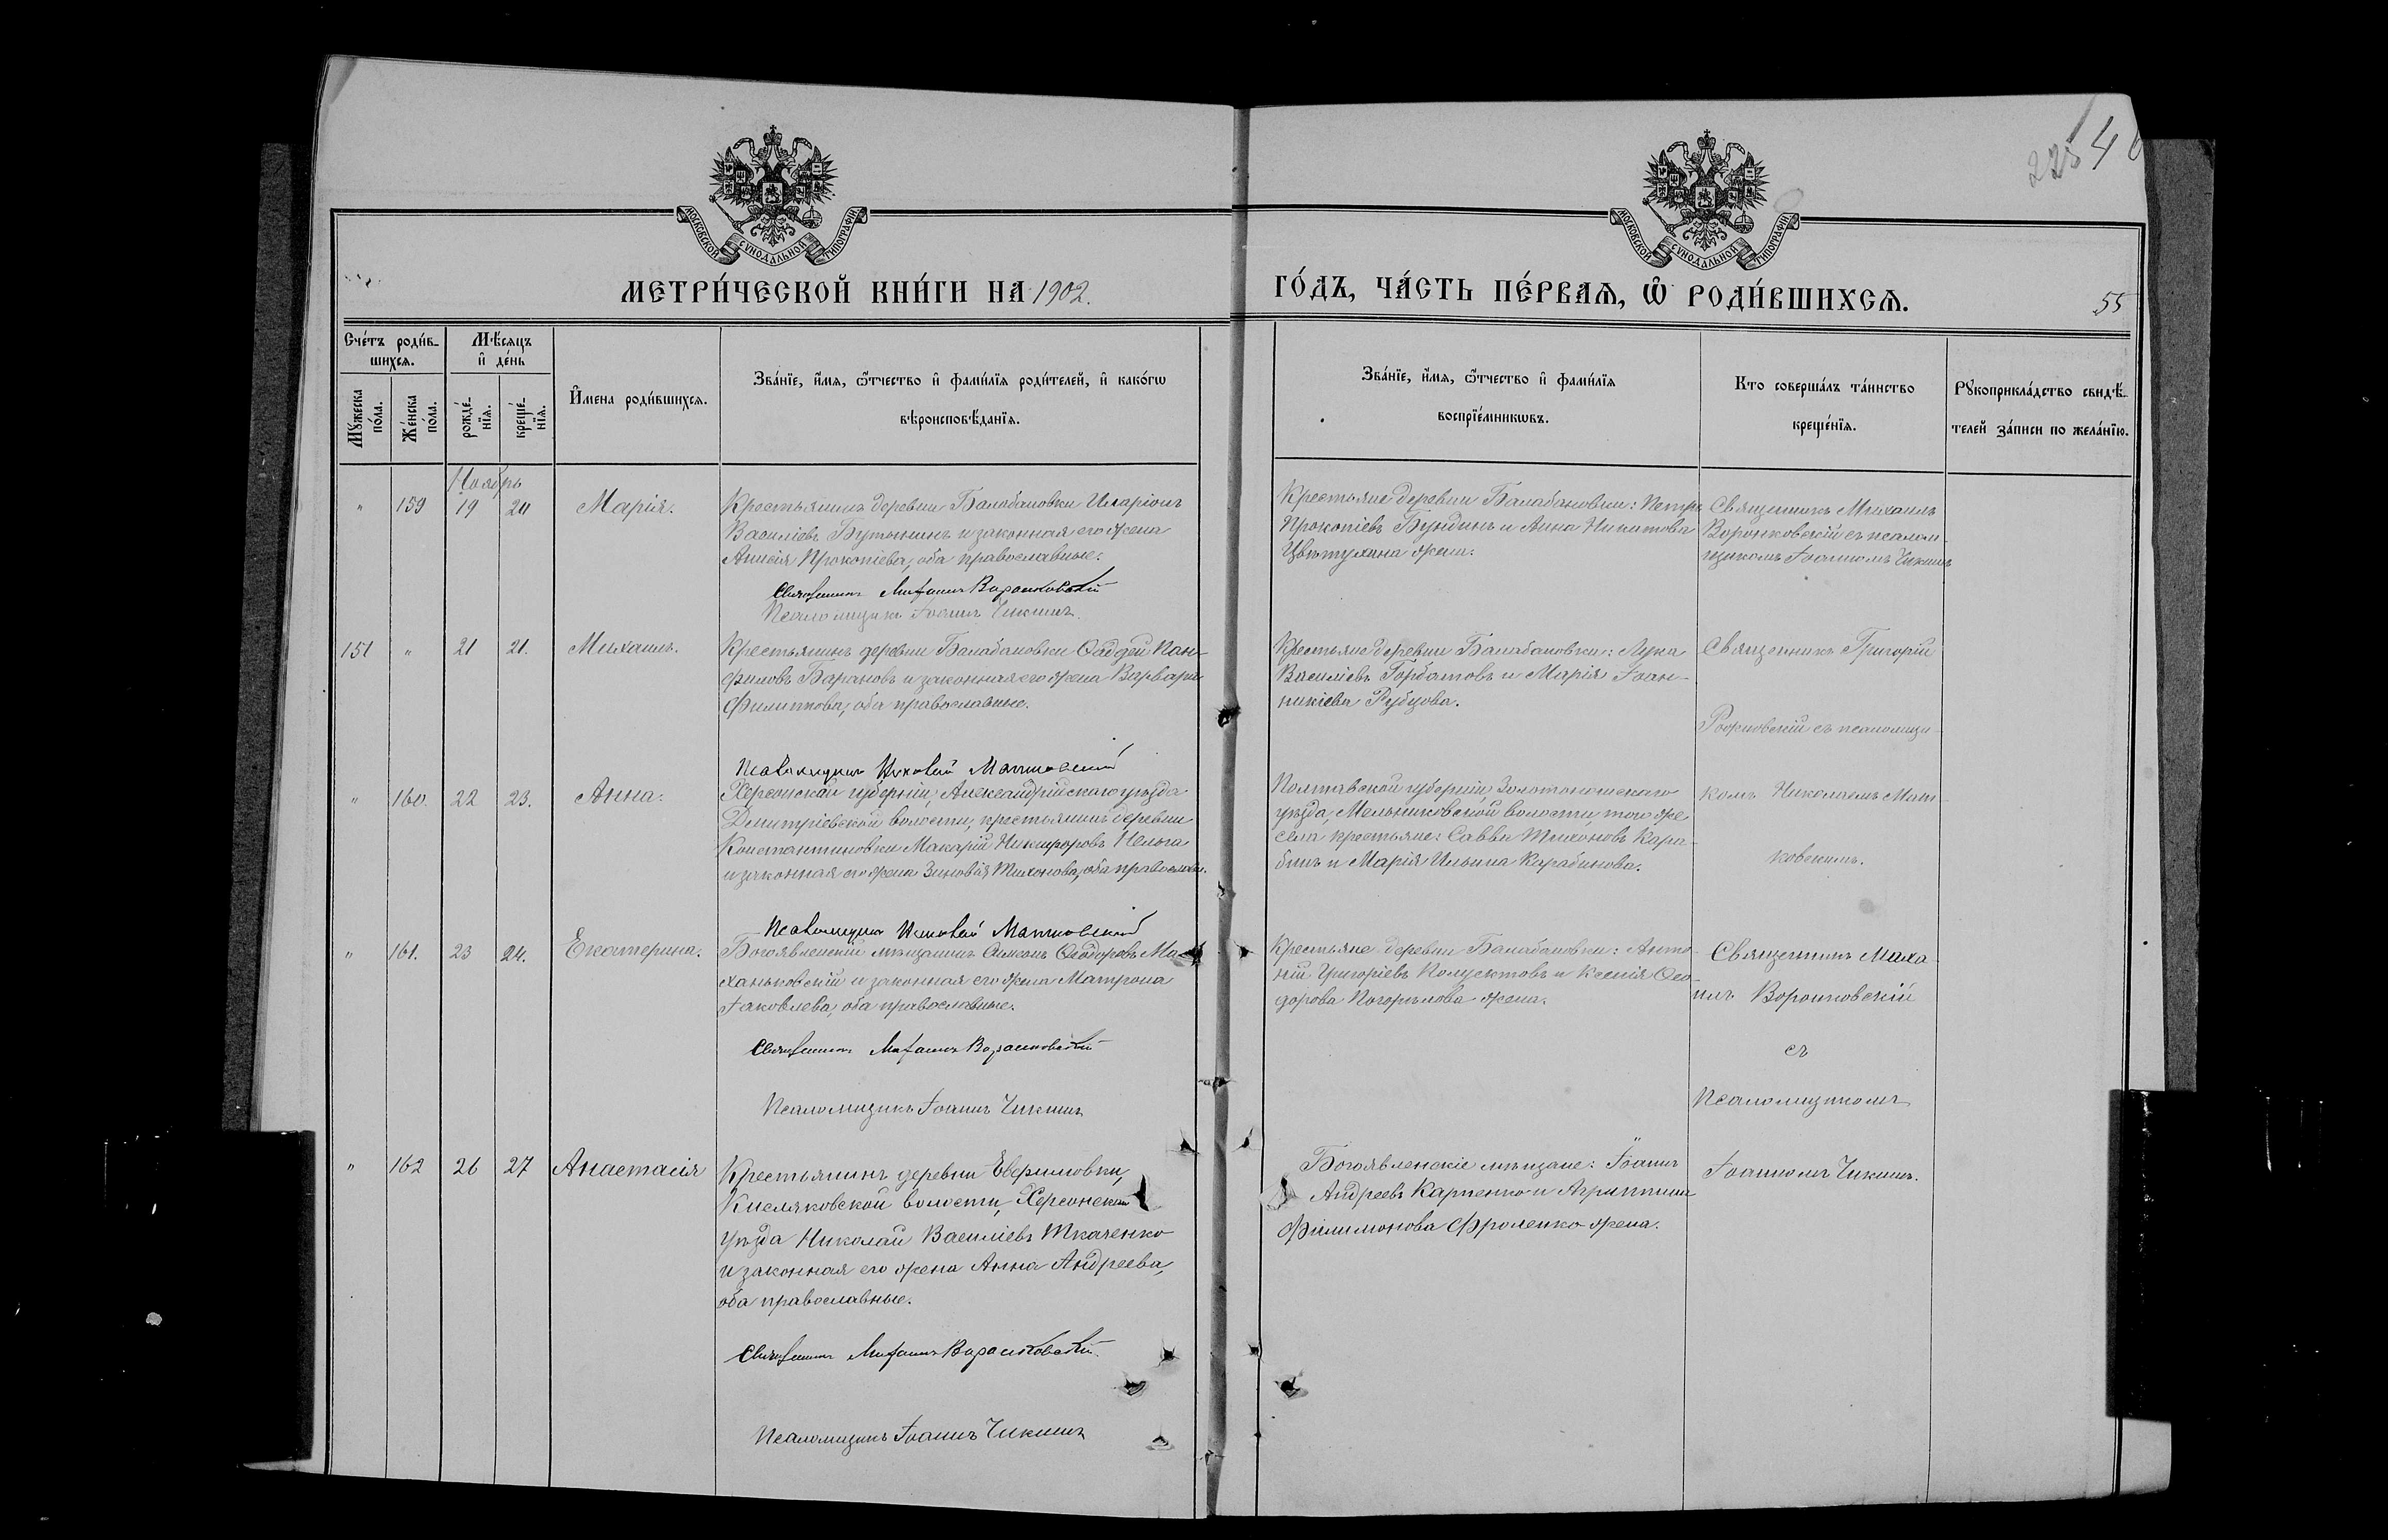 МОСКОВСКОЙ СѴНОДАЛЬНОЙ ТИПОГРАФІИ
МОСКОВСКОЙ СѴНОДАЛЬНОЙ ТИПОГРАФІИ
225
МЕТРИ́ЧЕСКОЙ КНИ́ГИ НА 1902.
ГО́ДЪ, ЧА́СТЬ ПЕ́РВАѦ, Ѡ РОДИ́ВШИХСѦ.
55
Сче́тъ роди́в-
шихсѧ.
Мѣ́сѧцъ
и҆ де́нь
Мꙋ́жеска
по́ла.
Же́нска
по́ла.
рожде́-
нїѧ.
креще́-
нїѧ.
И҆́мена роди́вшихсѧ.
Зва́нїе, и҆́мѧ, ѻ҆́тчество и҆ фами́лїѧ роди́телей, и҆ како́гѡ
вѣроисповѣ́данїѧ.
Зва́нїе, и҆́мѧ, ѻ҆́тчество и҆ фами́лїѧ
воспрїе́мникѡвъ.
Кто соверша́лъ та́инство
креще́нїѧ.
Рꙋкоприкла́дство свидѣ́-
телей за́писи по жела́нїю.
Ноябрь
" 159 19 24 Марія.
Крестьянинъ деревни Балабановки Иларіонъ
Василіевъ Бутынинъ и законная его жена
Анисія Прокопіева, оба православные.
Священникъ Михаилъ Воронковскій
Псаломщикъ Іоаннъ Чикинъ
Крестьяне деревни Балабановки: Петръ
Прокопіевъ Бундинъ и Анна Никитова
Цвѣтухина жена.
Священникъ Михаилъ
Воронковскій съ псалом-
щикомъ Іоанномъ Чикинъ
151 " 21 21. Михаилъ.
Крестьянинъ деревни Балабановки Ѳаддей Пан-
филовъ Барановъ и законная его жена Варвара
Филиппова, оба православные.
Псаломщикъ Николай
Крестьяне деревни Балабановки: Лука
Василіевъ Горбатовъ и Марія Іоан-
никіева Рубцова.
Священникъ Григорій
съ псаломщи-
" 160. 22 23. Анна.
Херсонской губерніи, Александрійскаго уѣзда
Дмитріевской волости, крестьянинъ деревни
Константиновки Макарій Никифоровъ
и законная его жена Зиновія Тихонова, оба православн.
Псаломщикъ Николай
Полтавской губерніи, Золотоношскаго
уѣзда, Мельниковской волости, того же
села крестьяне: Савва Тихоновъ Кара-
бинъ и Марія Ильина Карабинова.
комъ Николаемъ Мат-
ковскимъ.
" 161. 23 24. Екатерина.
Богоявленскій мѣщанинъ Симеонъ Ѳеодоровъ Ма-
ханьковскій и законная его жена Матрона
Іаковлева, оба православные.
Священникъ Михаилъ Воронковскій
Псаломщикъ Іоаннъ Чикинъ
Крестьяне деревни Балабановки: Анто-
ній Григоріевъ Полуектовъ и Ксенія Ѳео-
дорова Погорѣлова жена.
Священникъ Миха-
илъ Воронковскій
съ
Псаломщикомъ
" 162 26 27 Анастасія
Крестьянинъ деревни Евфимовки,
Кисляковской волости, Херсонскаго
уѣзда Николай Василіевъ Ткаченко
и законная его жена Анна Андреева,
оба православные.
Священникъ Михаилъ Воронковскій.
Псаломщикъ Іоаннъ Чикинъ
Богоявленскіе мѣщане: Іоаннъ
Андреевъ Карпенко и Агриппина
Филимонова Фроленко жена.
Іоанномъ Чикинъ.